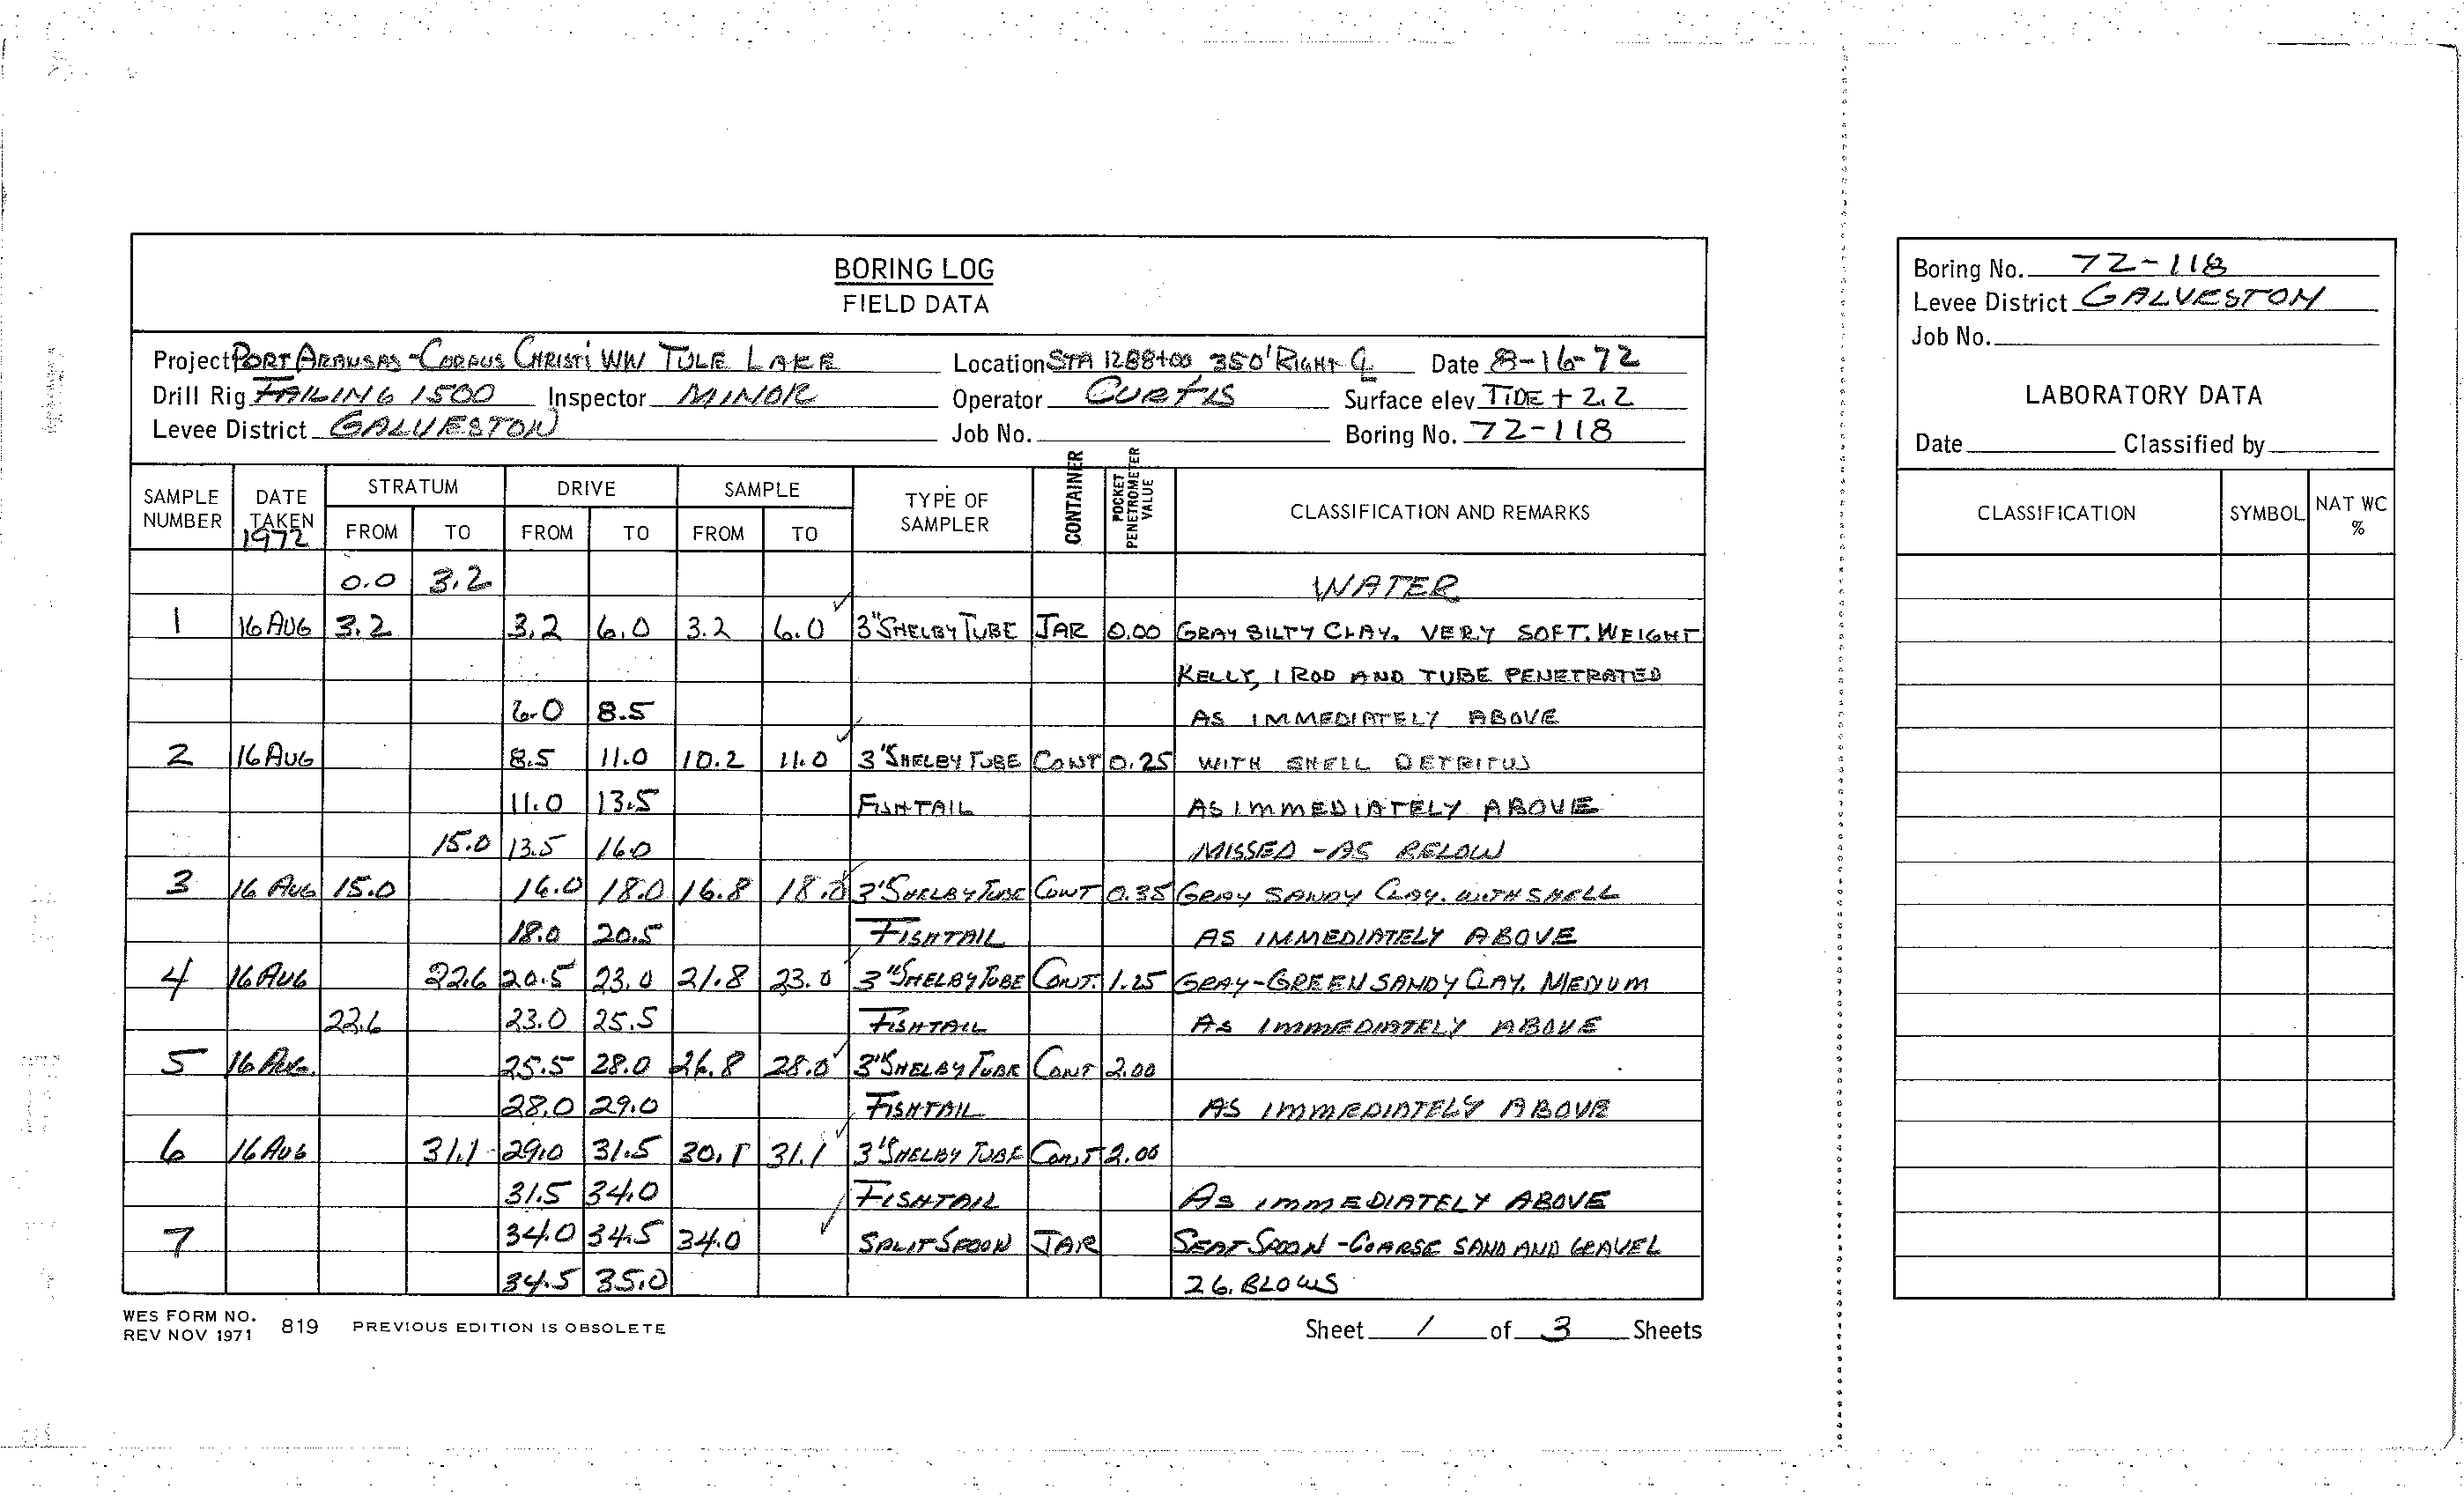 BORING LOG
FIELD DATA
Project PORT ARANSAS - CORPUS CHRISTI WW TULE LAKE Location STA 1288+00 350' RIGHT ℄ Date 8-16-72
Drill Rig FAILING 1500 Inspector MINOR Operator CURTIS Surface elev TIDE + 2.2
Levee District GALVESTON Job No. Boring No. 72-118
SAMPLE NUMBER DATE TAKEN 1972 STRATUM FROM TO DRIVE FROM TO SAMPLE FROM TO TYPE OF SAMPLER CONTAINER POCKET PENETROMETER VALUE CLASSIFICATION AND REMARKS
0.0 3.2 WATER
1 16 AUG 3.2 3.2 6.0 3.2 6.0 3" SHELBY TUBE JAR 0.00 GRAY SILTY CLAY. VERY SOFT. WEIGHT
KELLY, 1 ROD AND TUBE PENETRATED
6.0 8.5 AS IMMEDIATELY ABOVE
2 16 AUG 8.5 11.0 10.2 11.0 3" SHELBY TUBE CONT 0.25 WITH SHELL DETRITUS
11.0 13.5 FISHTAIL AS IMMEDIATELY ABOVE
15.0 13.5 16.0 MISSED - AS BELOW
3 16 AUG 15.0 16.0 18.0 16.8 18.0 3" SHELBY TUBE CONT 0.35 GRAY SANDY CLAY. WITH SHELL
18.0 20.5 FISHTAIL AS IMMEDIATELY ABOVE
4 16 AUG 22.6 20.5 23.0 21.8 23.0 3" SHELBY TUBE CONT. 1.25 GRAY-GREEN SANDY CLAY. MEDIUM
22.6 23.0 25.5 FISHTAIL AS IMMEDIATELY ABOVE
5 16 AUG. 25.5 28.0 26.8 28.0 3" SHELBY TUBE CONT 2.00
28.0 29.0 FISHTAIL AS IMMEDIATELY ABOVE
6 16 AUG 31.1 29.0 31.5 30.1 31.1 3" SHELBY TUBE CONT 2.00
31.5 34.0 FISHTAIL AS IMMEDIATELY ABOVE
7 34.0 34.5 34.0 SPLIT SPOON JAR SEAT SPOON - COARSE SAND AND GRAVEL
34.5 35.0 26. BLOWS
WES FORM NO. REV NOV 1971 819 PREVIOUS EDITION IS OBSOLETE Sheet 1 of 3 Sheets
Boring No. 72-118
Levee District GALVESTON
Job No.
LABORATORY DATA
Date Classified by
CLASSIFICATION SYMBOL NAT WC %